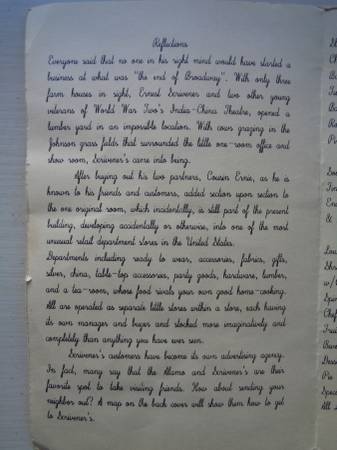 Reflections
Everyone said that no one in his right mind would have started a
business at what was "the end of Broadway". With only three
farm houses in sight, Ernest Scrivener and two other young
veterans of World War Two's India-China Theatre, opened a
lumber yard in an impossible location. With cows grazing in the
Johnson grass fields that surrounded the little one-room office and
show room, Scrivener's came into being.
After buying out his two partners, Cousin Ernie, as he is
known to his friends and customers, added section upon section to
the one original room, which incidentally, is still part of the present
building, developing accidentally or otherwise, into one of the most
unusual retail department stores in the United States.
Departments including ready to wear, accessories, fabrics, gifts,
silver, china, table-top accessories, party goods, hardware, lumber,
and a tea-room, whose food rivals your own good home-cooking.
All are operated as separate little stores within a store, each having
its own manager and buyer and stocked more imaginatively and
completely than anything you have ever seen.
Scrivener's customers have become its own advertising agency.
In fact, many say that the Alamo and Scrivener's are their
favorite spot to take visiting friends. How about sending your
neighbor out? A map on the back cover will show them how to get
to Scrivener's.